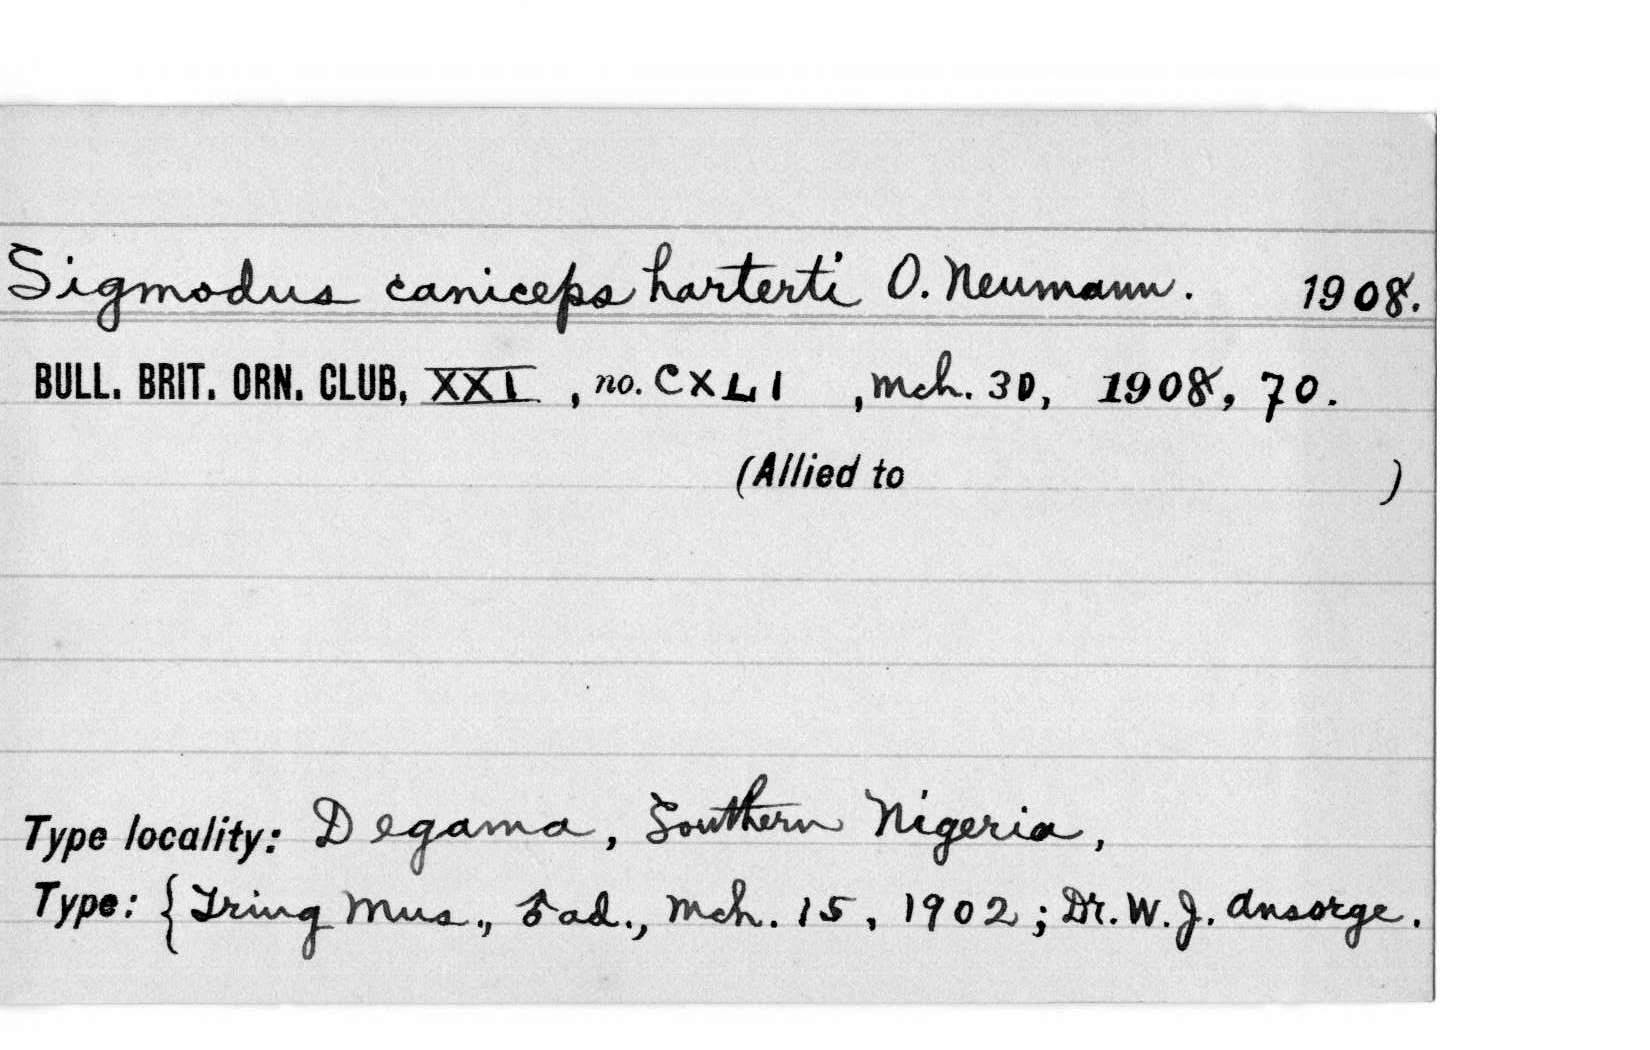 Sigmodus caniceps harterti O. Neumann. 1908.
BULL. BRIT. ORN. CLUB, XXI, no. CXLI, Mch. 30, 1908, 70.
(Allied to )
Type locality: Degama, Southern Nigeria,
Type: {Tring Mus., ♂ ad., Mch. 15, 1902; Dr. W. J. Ansorge.